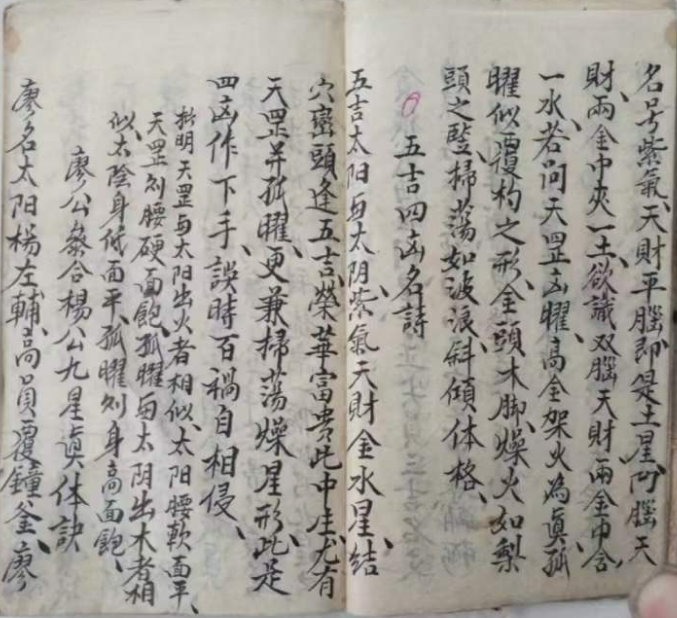 名号紫氣、天財平腦即是土星、凹腦天
財、兩金中夾一土、欲識双腦天財、兩金中含
一水、若问天罡凶曜、高金架火為真、孤
曜似覆杓之形、金頭木脚、燥火如梨
頭之竪、掃荡如波浪、斜傾体格、
五吉四凶名詩
五吉太阳与太阴、紫氣天財金水星、结
穴密頭逢五吉、榮華富贵此中庄、尤有
天罡并孤曜、更兼掃荡燥星形、此是
四凶作下手、誤時百禍自相侵、
批明天罡与太阳出火者相似、太阳腰軟面平、
天罡刽腰硬面飽、孤曜与太阴出木者相
似、太陰身低面平、孤曜刽身高面飽、
廖公叅合楊公九星真体訣
廖名太阳楊左輔、高員覆鐘釜、廖